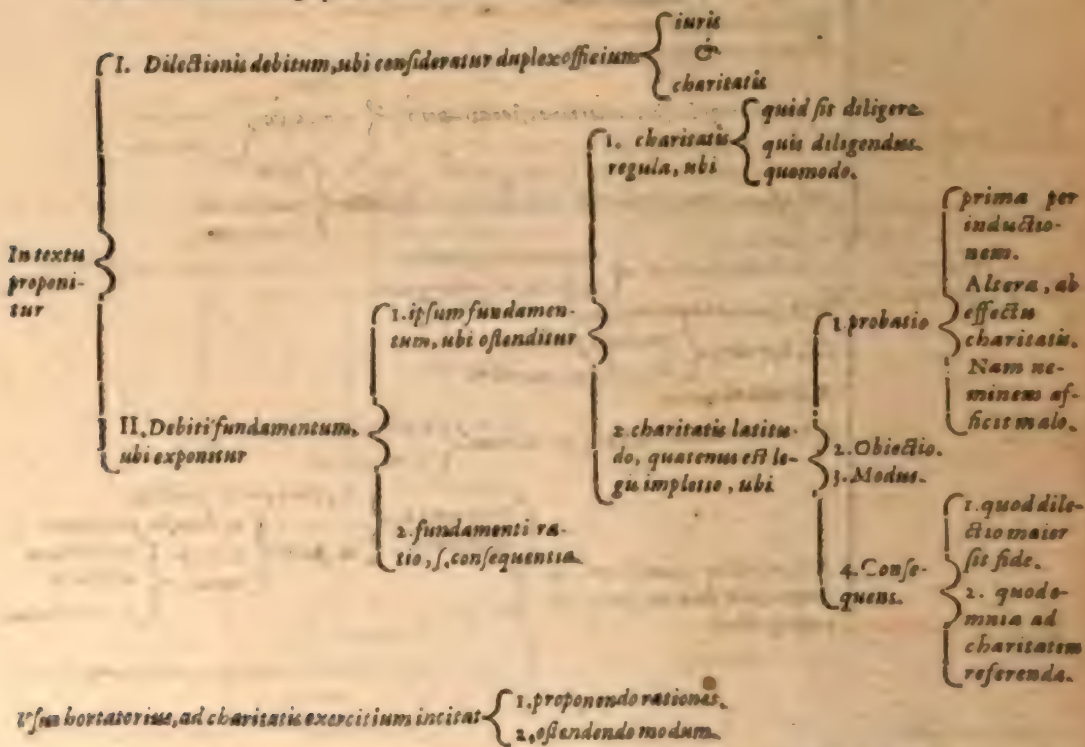 I. Dilectionis debitum, ubi consideratur duplex officium
iuris
&
charitatis
In textu
proponi-
tur
II. Debiti fundamentum,
ubi exponitur
1. ipsum fundamen-
tum, ubi ostenditur
1. charitatis
regula, ubi
quid sit diligere.
quis diligendus.
quomodo.
2. charitatis latitu-
do, quatenus est le-
gis impletio, ubi
1. probatio
prima per
inductio-
nem.
Altera, ab
effectu
charitatis.
Nam ne-
minem af-
ficit malo.
2. Obiectio.
3. Modus.
4. Conse-
quens.
1. quod dile-
ctio maior
sit fide.
2. quod o-
mnia ad
charitatem
referenda.
2. fundamenti ra-
tio, s. consequentia.
Usus hortatorius, ad charitatis exercitium incitat
1. proponendo rationes.
2, ostendendo modum.